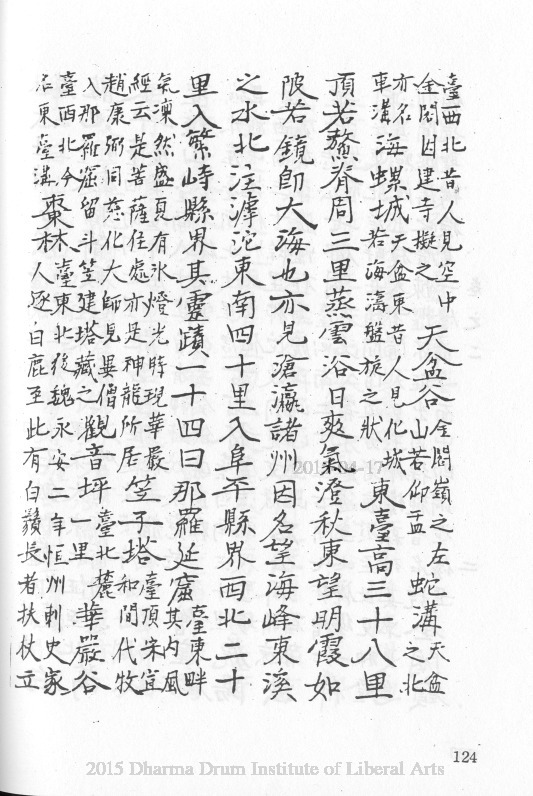 臺西北昔人見空中金閣因建寺擬之天盆谷金閣嶺之左山若仰盂蛇溝天盆之北
亦名車溝海螺城天盆東昔人見化城若海螺盤旋之狀東臺高三十八里
頂若鰲脊周三里蒸雲浴日爽氣澄秋東望明霞如
陂若鏡即大海也亦見滄瀛諸州因名望海峰東溪
之水北注滹沱東南四十里入阜平縣界西北二十
里入繁峙縣界其靈蹟一十四曰那羅延窟臺東畔其內風
氣凜然盛夏有氷燈光時現華嚴經云是菩薩住處亦是神龍所居笠子塔臺頂宋宣和間代牧
趙康弼同慈化大師見異僧入那羅窟留斗笠建塔藏之觀音坪臺北麓一里華嚴谷
臺西北今名東臺溝棗林臺東北後魏永安二年恒州刺史家人逐白鹿至此有白鬚長者扶杖立
124
2015 Dharma Drum Institute of Liberal Arts